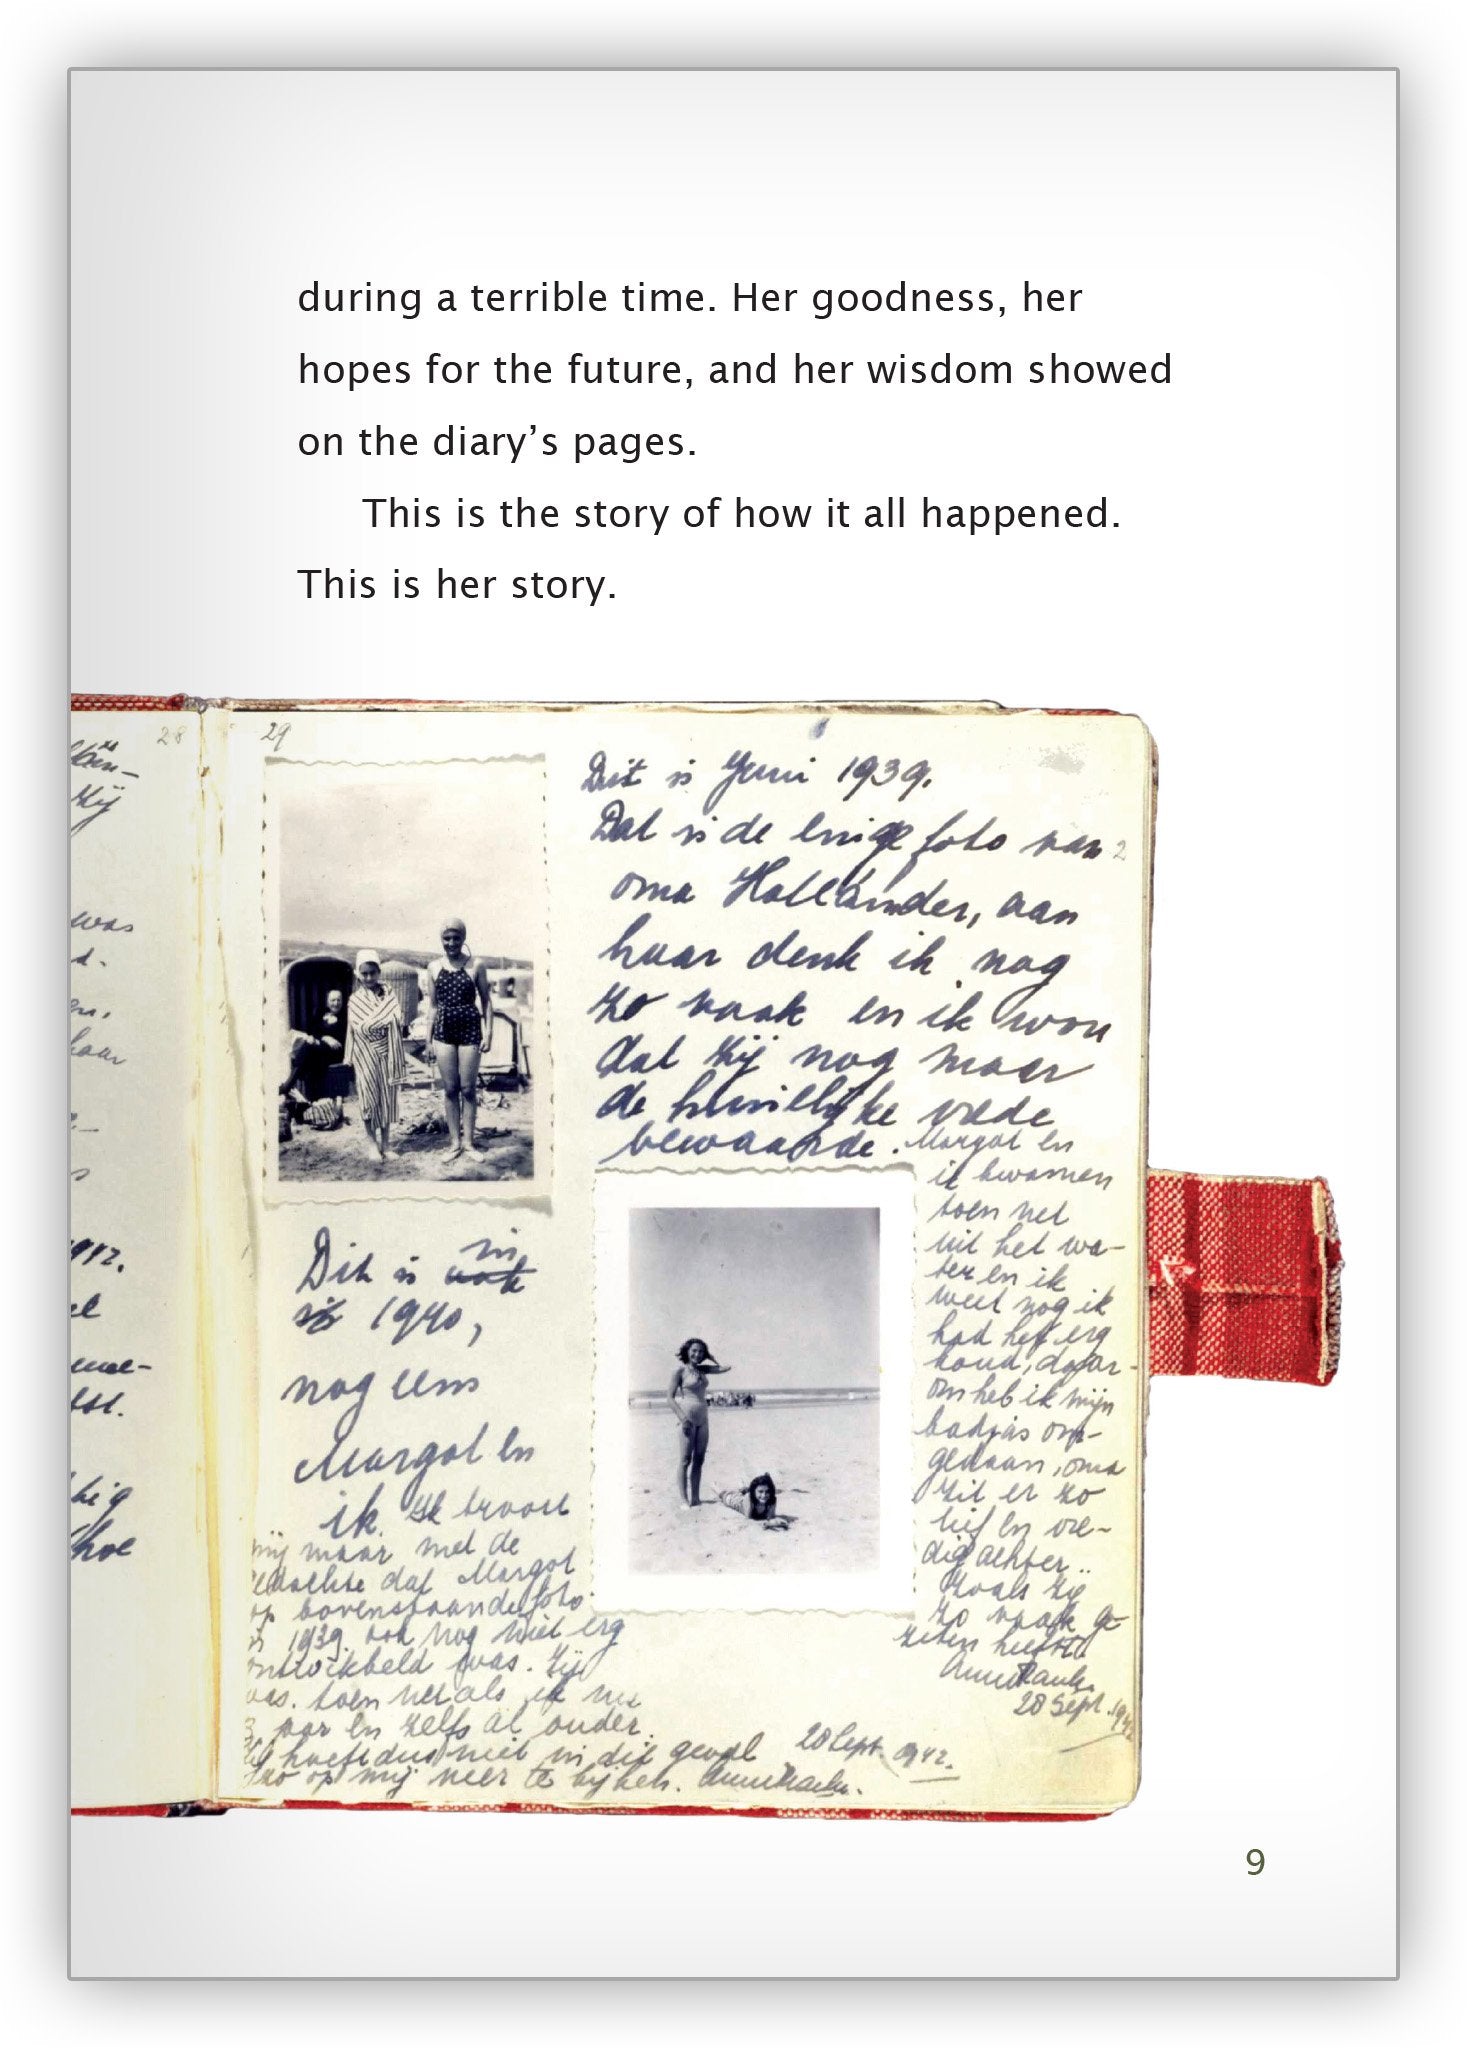 during a terrible time. Her goodness, her
hopes for the future, and her wisdom showed
on the diary’s pages.
This is the story of how it all happened.
This is her story.
28
zij
was
haar
hoe
29
Dit is Juni 1939.
Dat is de enige foto van
oma Holländer, aan
haar denk ik nog
zo vaak en ik wou
dat zij nog maar
de huiselijke vrede
bewaarde. Margot en
ik kwamen
toen net
uit het wa-
ter en ik
weet nog ik
had het erg
koud, daar-
om heb ik mijn
badjas om-
gedaan, oma
zit er zo
lief en vre-
dig achter..
Zoals zij
zo vaak ge-
zeten heeft
Anne Frank.
28 Sept. 1942
Dit is in
1940,
nog eens
Margot en
ik. Ik troost
mij maar met de
gedachte dat Margot
op bovenstaande foto
in 1939 ook nog niet erg
ontwikkeld was. Zij
was toen net als ik nu
13 jaar en zelfs al ouder.
hoeft dus niet in dit geval
op mij neer te kijken. Anne Frank.
28 Sept. 1942.
9